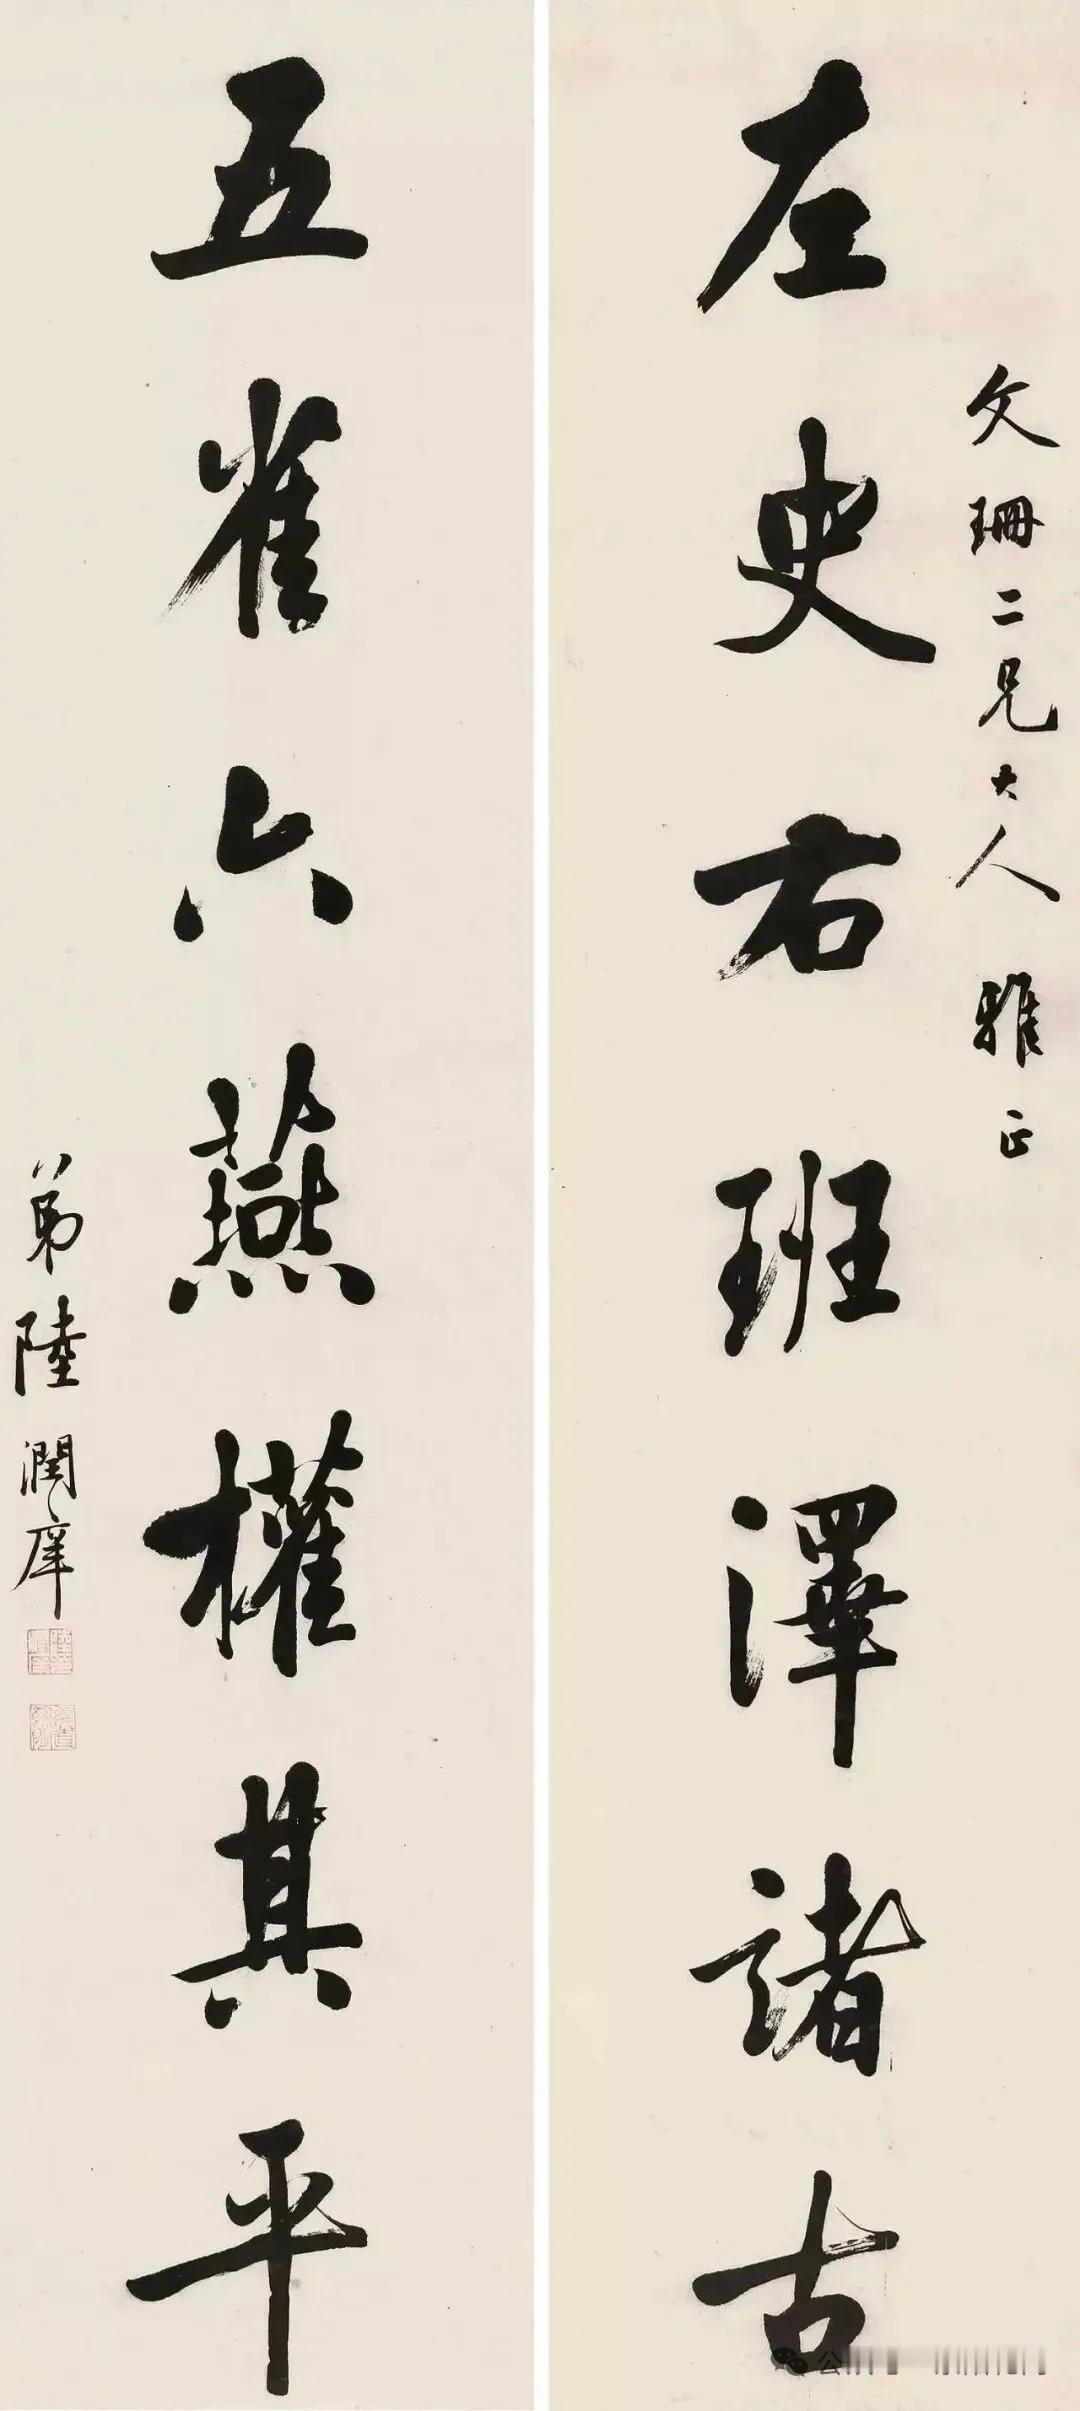 文珊二兄大人雅正
左史右班澤諸古
五雀六燕權其平
弟陸潤庠
公